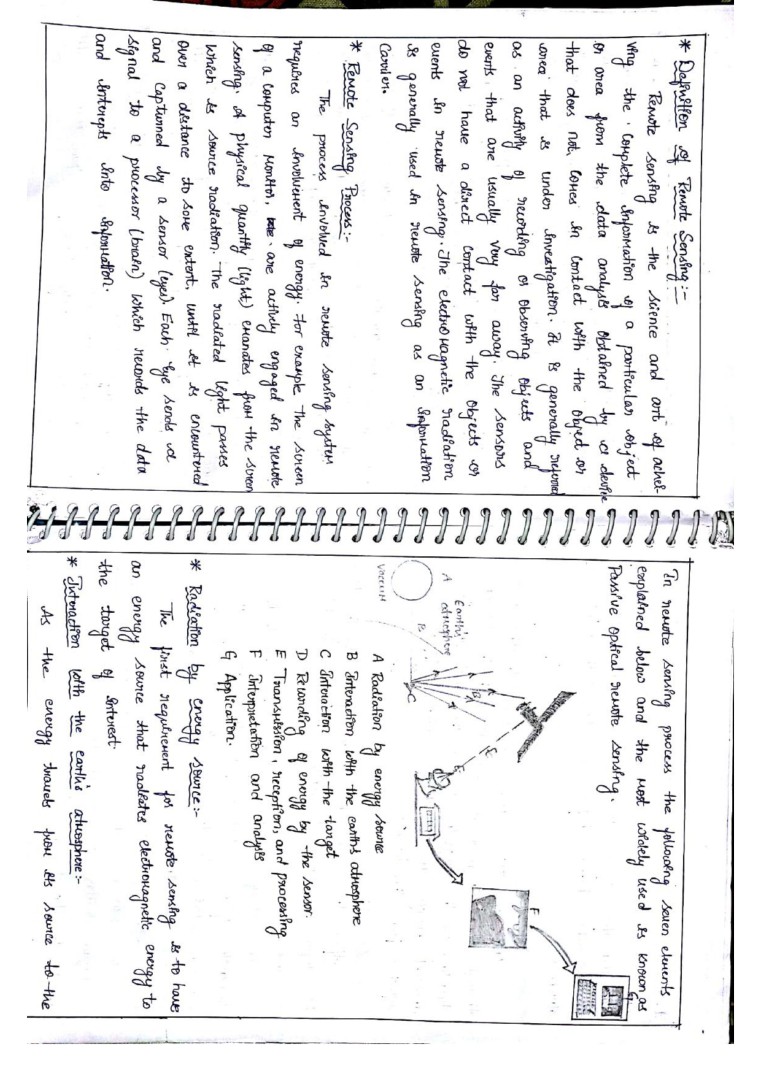 * Definition of Remote Sensing :-
Remote sensing is the science and art of achei-
ving the complete information of a particular object
or area from the data analysis obtained by a device
that does not comes in contact with the object or
area that is under investigation. It is generally referred
as an activity of recording or observing objects and
events that are usually very far away. The sensors
do not have a direct contact with the objects or
events in remote sensing. The electromagnetic radiation
is generally used in remote sensing as an information
carrier.
* Remote Sensing Process :-
The process involved in remote sensing system
requires an involvement of energy. For example the screen
of a computer monitor, are actively engaged in remote
sensing. A physical quantity (light) emanates from the screen
which is source radiation. The radiated light passes
over a distance to some extent, until it is encountered
and captured by a sensor (eyes). Each eye sends a
signal to a processor (brain) which records the data
and interepts into information.
In remote sensing process the following seven elements
explained below and the most widely used is known as
Passive optical remote sensing.
G
F
E
E
D
B
A
Earth's
atmosphere
B
C
Vaccum
A Radiation by energy source
B Interaction with the earth's atmosphere
C Interaction with the target
D Recording of energy by the sensor
E Transmission, reception, and processing
F Interpretation and analysis
G Application.
* Radiation by energy source :-
The first requirement for remote sensing is to have
an energy source that radiates electromagnetic energy to
the target of interest.
* Interaction with the earth's atmosphere :-
As the energy travels from its source to the